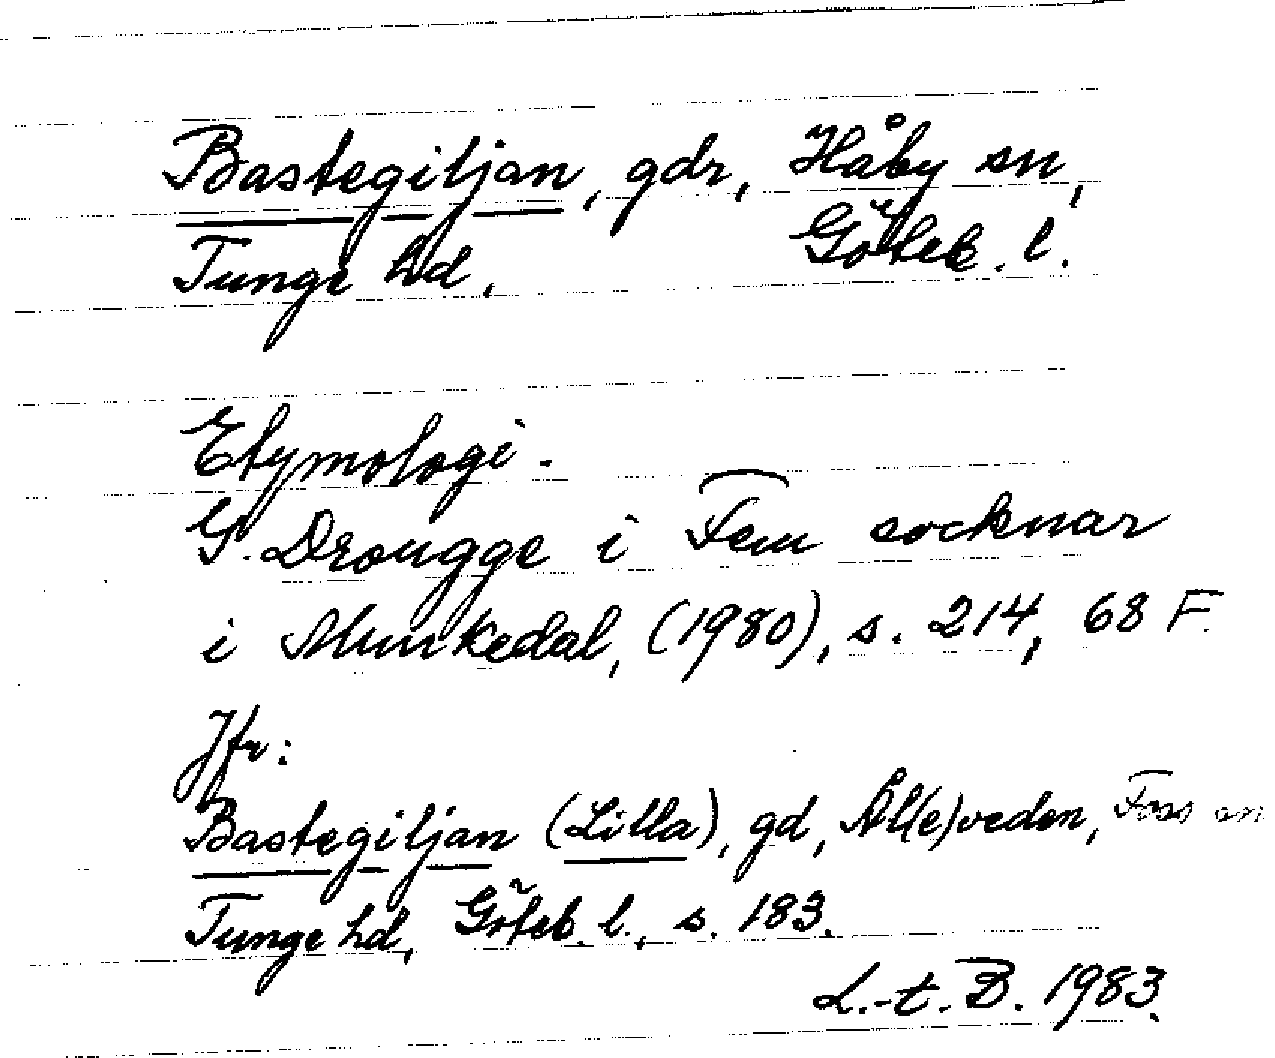 Bastegiljan, gdr, Håby sn,
Tunge hd. Göteb. l.
Etymologi.
G. Drougge i Fem socknar
i Munkedal, (1980), s. 214, 68 F.
Jfr:
Bastegiljan (Lilla), gd, Äl(e)veden, Foss sn
Tunge hd, Göteb. l., s. 183.
L.-t. B. 1983.